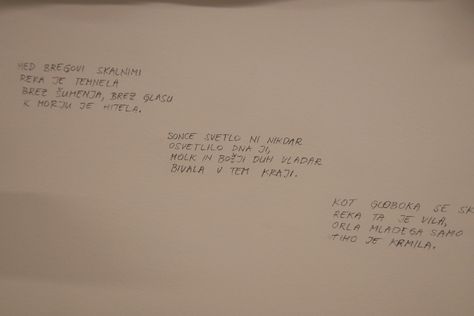 MED BREGOVI SKALNIMI
REKA JE TEMNELA
BREZ ŠUMENJA, BREZ GLASU
K MORJU JE HITELA.
SONCE SVETLO NI NIKDAR
OSVETLILO DNA JI,
MOLK IN BOŽJI DUH VLADAR
BIVALA V TEM KRAJI.
KOT GLOBOKA SE SK
REKA TA JE VILA,
ORLA MLADEGA SAMO
TIHO JE KRMILA.